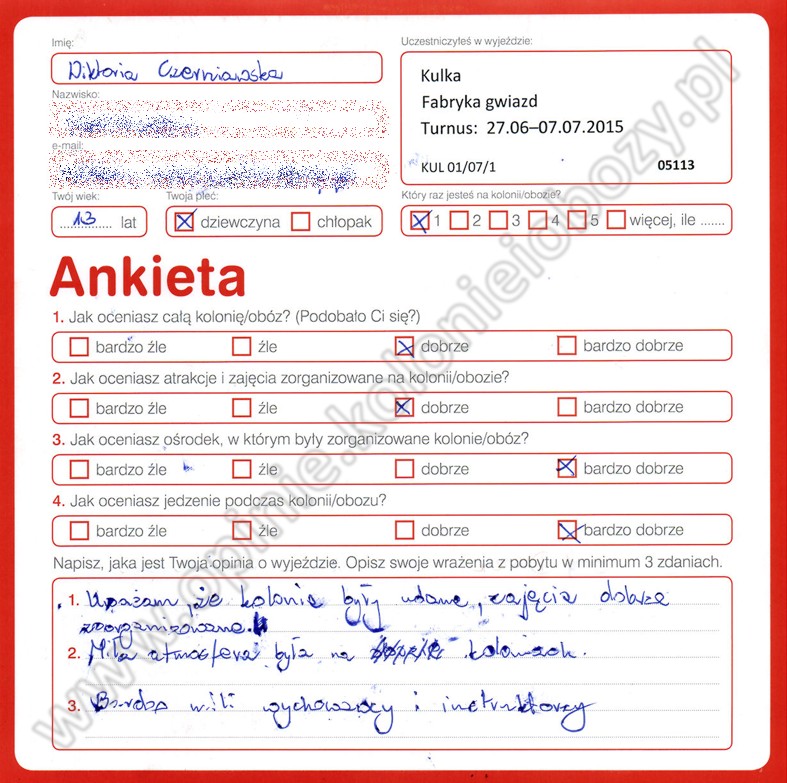 Imię:
Wiktoria Czerniawska
Nazwisko:
e-mail:
Twój wiek:
13 lat
Twoja płeć:
dziewczyna chłopak
Uczestniczyłeś w wyjeździe:
Kulka
Fabryka gwiazd
Turnus: 27.06–07.07.2015
KUL 01/07/1 05113
Który raz jesteś na kolonii/obozie?
1 2 3 4 5 więcej, ile .......
Ankieta
1. Jak oceniasz całą kolonię/obóz? (Podobało Ci się?)
bardzo źle źle dobrze bardzo dobrze
2. Jak oceniasz atrakcje i zajęcia zorganizowane na kolonii/obozie?
bardzo źle źle dobrze bardzo dobrze
3. Jak oceniasz ośrodek, w którym były zorganizowane kolonie/obóz?
bardzo źle źle dobrze bardzo dobrze
4. Jak oceniasz jedzenie podczas kolonii/obozu?
bardzo źle źle dobrze bardzo dobrze
Napisz, jaka jest Twoja opinia o wyjeździe. Opisz swoje wrażenia z pobytu w minimum 3 zdaniach.
1. Uważam, że kolonie były udane, zajęcia dobrze
zoorganizowane.
2. Miła atmosfera była na koloniach.
3. Bardzo mili wychowawcy i instruktorzy
www.opinie.kolonieiobozy.pl